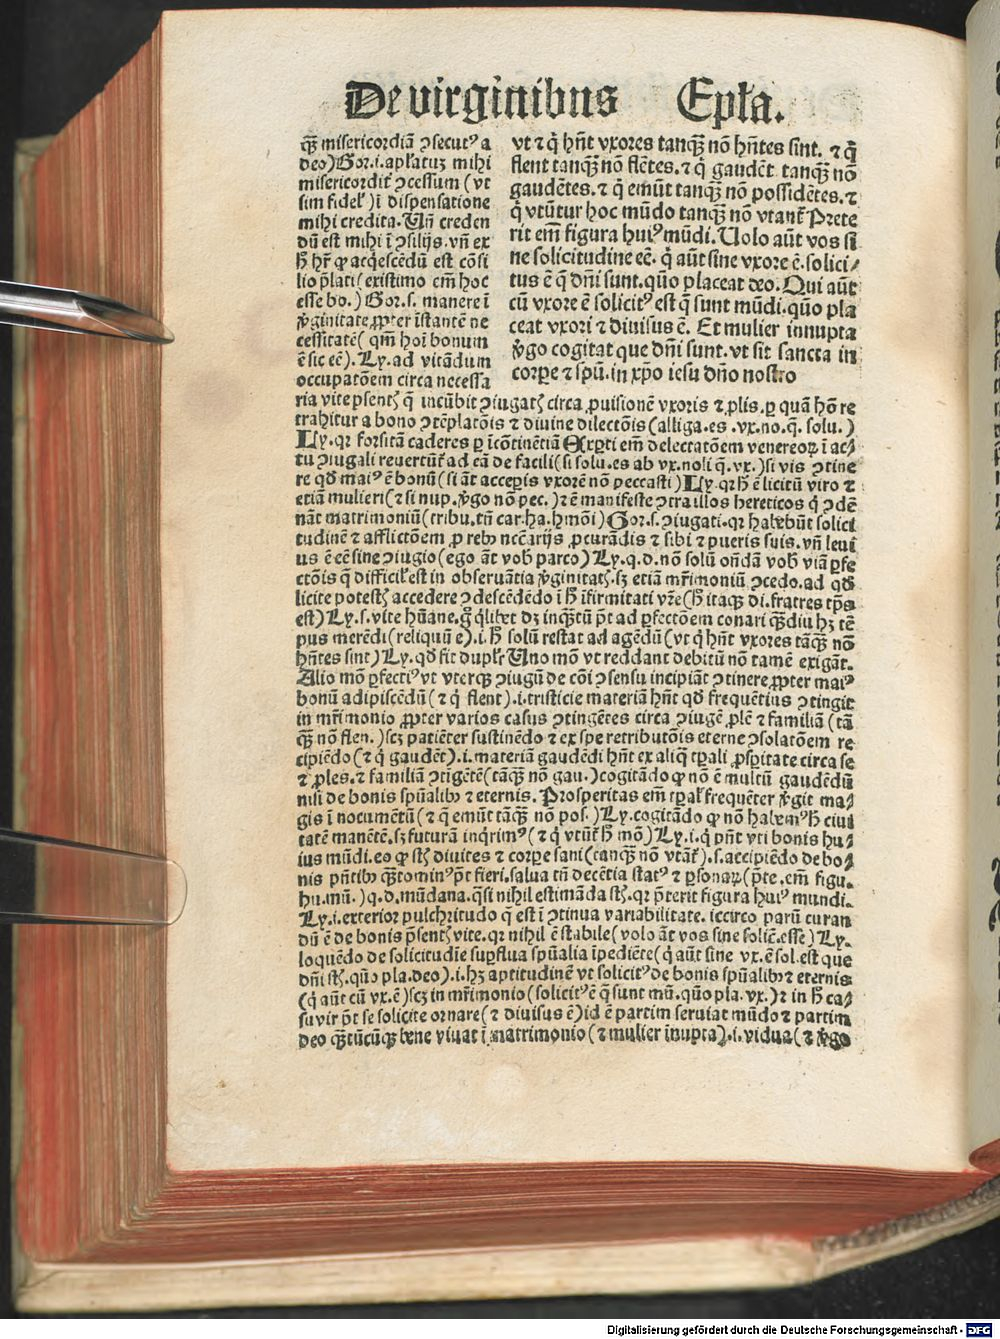 De virginibus Epła.
q̄ꝫ misericordiā ꝯsecutꝰ a
deo) Gor.i.apłatuꝫ mihi
misericordit̕ ꝯcessum (vt
sim fidel̕) ī dispensatione
mihi credita. Uñ creden
dū est mihi ī ꝯsilijs. vñ ex
ħ hr̄ ꝙ acq̇escēdū est cōsi
lio p̄lati (existimo em̄ hoc
esse bo.) Gor.s. manere ī
v̓ginitate ꝓpter īstantē ne
cessitatē (qm̄ hoi bonum
ē sic eē). Ly. ad vitādum
occupatōem circa necessa
vt ⁊ q̇ hn̄t vxores tanqꝫ̄ nō hn̄tes sint. ⁊ q̇
flent tanqꝫ̄ nō flētes. ⁊ q̇ gaudēt tanqꝫ̄ nō
gaudētes. ⁊ q̇ emūt tanqꝫ̄ nō possidētes. ⁊
q̇ vtūtur hoc mūdo tanqꝫ̄ nō vtant̕ Prete
rit em̄ figura huiꝰ mūdi. Uolo aūt vos si
ne solicitudine eē. q̇ aūt sine vxore ē. solici/
tus ē q̄ dn̄i sunt. quō placeat deo. Qui aūt
cū vxore ē solicitꝰ est q̄ sunt mūdi. quō pla
ceat vxori ⁊ diuisus ē. Et mulier innupta
v̓go cogitat que dn̄i sunt. vt sit sancta in
corpe ⁊ spū. in xp̄o iesu dn̄o nostro
ria vite p̄sentꝭ q̄ incūbit ꝯiugatꝭ circa ꝓuisionē vxoris ⁊ ꝓlis. ꝑ quā hō re
trahitur a bono ꝯtēplatōis ⁊ diuine dilectōis (alliga.es .vx.no.q̄. solu.)
Ly. qꝛ forsitā caderes ꝑ īcōtinētiā Exꝑti em̄ delectatōem venereoꝝ ī ac/
tu ꝯiugali reuertūt̕ ad eā de facili (si solu.es ab vx.noli q̄.vx.) si vis ꝯtine
re qd̄ maiꝰ ē bonū (si āt acceꝑis vxorē nō peccasti) Ly. qꝛ ħ ē licitū viro ⁊
etiā mulieri (⁊ si nup. v̓go nō pec.) ⁊ ē manifeste ꝯtra illos hereticos q̇ ꝯdē
nāt matrimoniū (tribu. tn̄ car. ha. hmōi) Gor.s. ꝯiugati. qꝛ habebūt solici
tudinē ⁊ afflictōem ꝓ rebꝰ necc̄arijs ꝓcurādis ⁊ sibi ⁊ pueris suis. vñ leui
us ē eē sine ꝯiugio (ego āt vob̕ parco) Ly. q.d. nō solū on̄dā vob̕ viā ꝑfe
ctōis q̄ difficil̕ est in obseruātia v̓ginitatꝭ. sꝫ etiā mr̄imoniū ꝯcedo. ad qd̄
licite potestꝭ accedere ꝯdescēdēdo ī ħ īfirmitati vr̄e (ħ itaqꝫ di. fratres tp̄s
est) Ly.s. vite hūane. g̊ q̇libet dꝫ inqꝫ̄tū p̄t ad ꝑfectōem conari qꝫ̄diu hꝫ tē
pus merēdi (reliquū e) .i. ħ solū restat ad agēdū (vt q̇ hn̄t vxores tāqꝫ̄ nō
hn̄tes sint) Ly. qd̄ fit dupłr Uno mō vt reddant debitū nō tamē exigāt.
Alio mō ꝑfectiꝰ vt vterqꝫ ꝯiugū de cōi ꝯsensu incipiāt ꝯtinere ꝓpter maiꝰ
bonū adipiscēdū (⁊ q̇ flent) .i. tristicie materiā hn̄t qd̄ frequētius ꝯtingit
in mr̄imonio ꝓpter varios casus ꝯtingētes circa ꝯiugē ꝓlē ⁊ familiā (tā
qꝫ̄ nō flen.) scꝫ patiēter sustinēdo ⁊ ex spe retributōis eterne ꝯsolatōem re
cipiēdo (⁊ q̇ gaudēt) .i. materiā gaudēdi hn̄t ex aliq̄ tꝑali ꝓsꝑitate circa se
⁊ ꝓles. ⁊ familiā ꝯtīgētē (tāqꝫ̄ nō gau.) cogitādo ꝙ nō ē multū gaudēdū
nisi de bonis spūalibꝰ ⁊ eternis. Prosperitas em̄ tꝑal̕ frequēter v̓git ma/
gis ī nocumētū (⁊ q̇ emūt tāqꝫ̄ nō pos.) Ly. cogitādo ꝙ nō habemꝰ ħ ciui
tatē manētē. sꝫ futurā inq̇rimꝰ (⁊ q̇ vtūt̕ ħ mō) Ly.i. q̇ pn̄t vti bonis hu/
ius mūdi. eo ꝙ stꝭ diuites ⁊ corꝑe sani (tanqꝫ̄ nō vtāt̕) .s. accipiēdo de bo/
nis pn̄tibꝰ qꝫ̄tominꝰ p̄t fieri. salua tn̄ decētia statꝰ ⁊ ꝑsonaꝝ (p̄te. em̄ figu.
hu. mū.) q.d. mūdana. q̄si nihil estimāda stꝭ. qꝛ p̄terit figura huiꝰ mundi.
Ly.i. exterior pulchritudo q̄ est ī ꝯtinua variabilitate. iccirco parū curan
dū ē de bonis p̄sentꝭ vite. qꝛ nihil ē stabile (volo āt vos sine solic̄. esse) Ly.
loquēdo de solicitudīe suꝑflua spūalia īpediēte (q̇ aūt sine vx. ē sol. est que
dn̄i stꝭ. quō pla. deo) .i. hꝫ aptitudinē vt solicitꝰ de bonis spūalibꝰ ⁊ eternis
(q̇ aūt cū vx. ē) scꝫ in mr̄imonio (solicitꝰ ē q̄ sunt mū. quō pla. vx.) ⁊ in ħ ca/
su vir p̄t se solicite ornare (⁊ diuisus ē) id ē partim seruiat mūdo ⁊ partim
deo qꝫ̄tūcūqꝫ bene viuat ī matrimonio (⁊ mulier īnupta) .i. vidua (⁊ v̓go
Digitalisierung gefördert durch die Deutsche Forschungsgemeinschaft - DFG